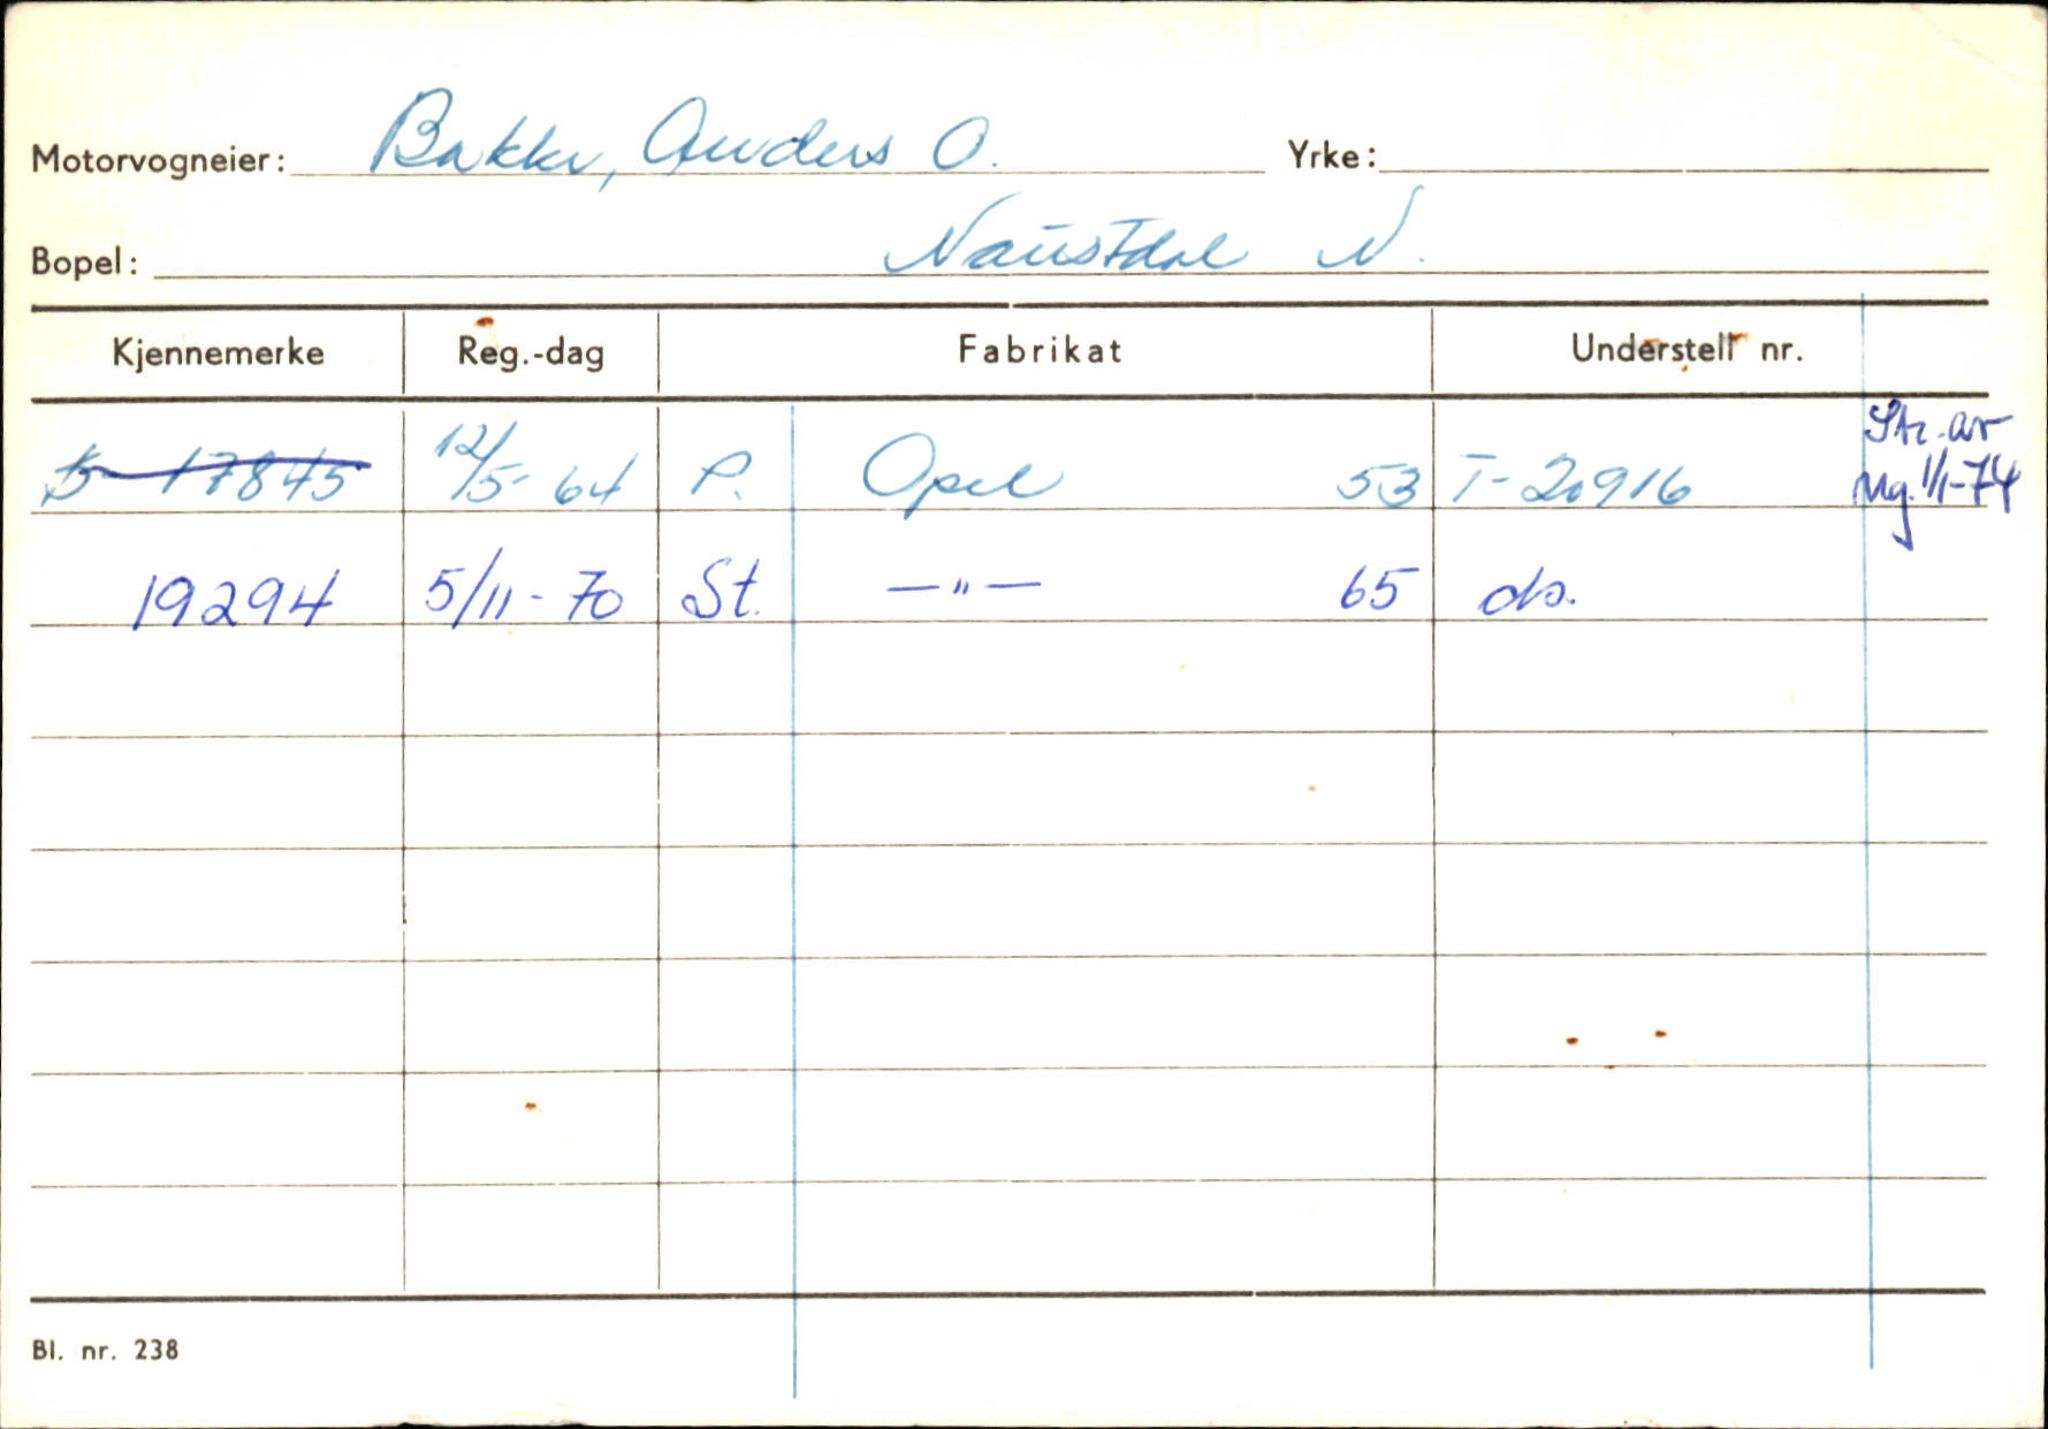 Motorvogneier: Bakke, Anders O. Yrke:
Bopel: Naustdal N.
Kjennemerke Reg.-dag Fabrikat Understell nr.
S-17845 12/5-64 P. Opel 53 T-20916 Str. av
reg. 1/1-74
19294 5/11-70 St. —"— 65 do.
Bl. nr. 238